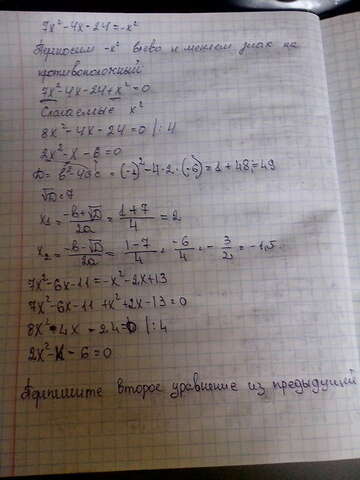 7x² - 4x - 24 = -x²
Переносим -x² влево и меняем знак на
противоположный:
7x² - 4x - 24 + x² = 0
Слагаемые x²
8x² - 4x - 24 = 0 | : 4
2x² - x - 6 = 0
D = b² - 4ac = (-1)² - 4 · 2 · (-6) = 1 + 48 = 49
√D = 7
x₁ = (-b + √D)/2a = (1 + 7)/4 = 2
x₂ = (-b - √D)/2a = (1 - 7)/4 = -6/4 = -3/2 = -1,5
7x² - 6x - 11 = -x² - 2x + 13
7x² - 6x - 11 + x² + 2x - 13 = 0
8x² - 4x - 24 = 0 | : 4
2x² - x - 6 = 0
Перепишите второе уравнение из предыдущей